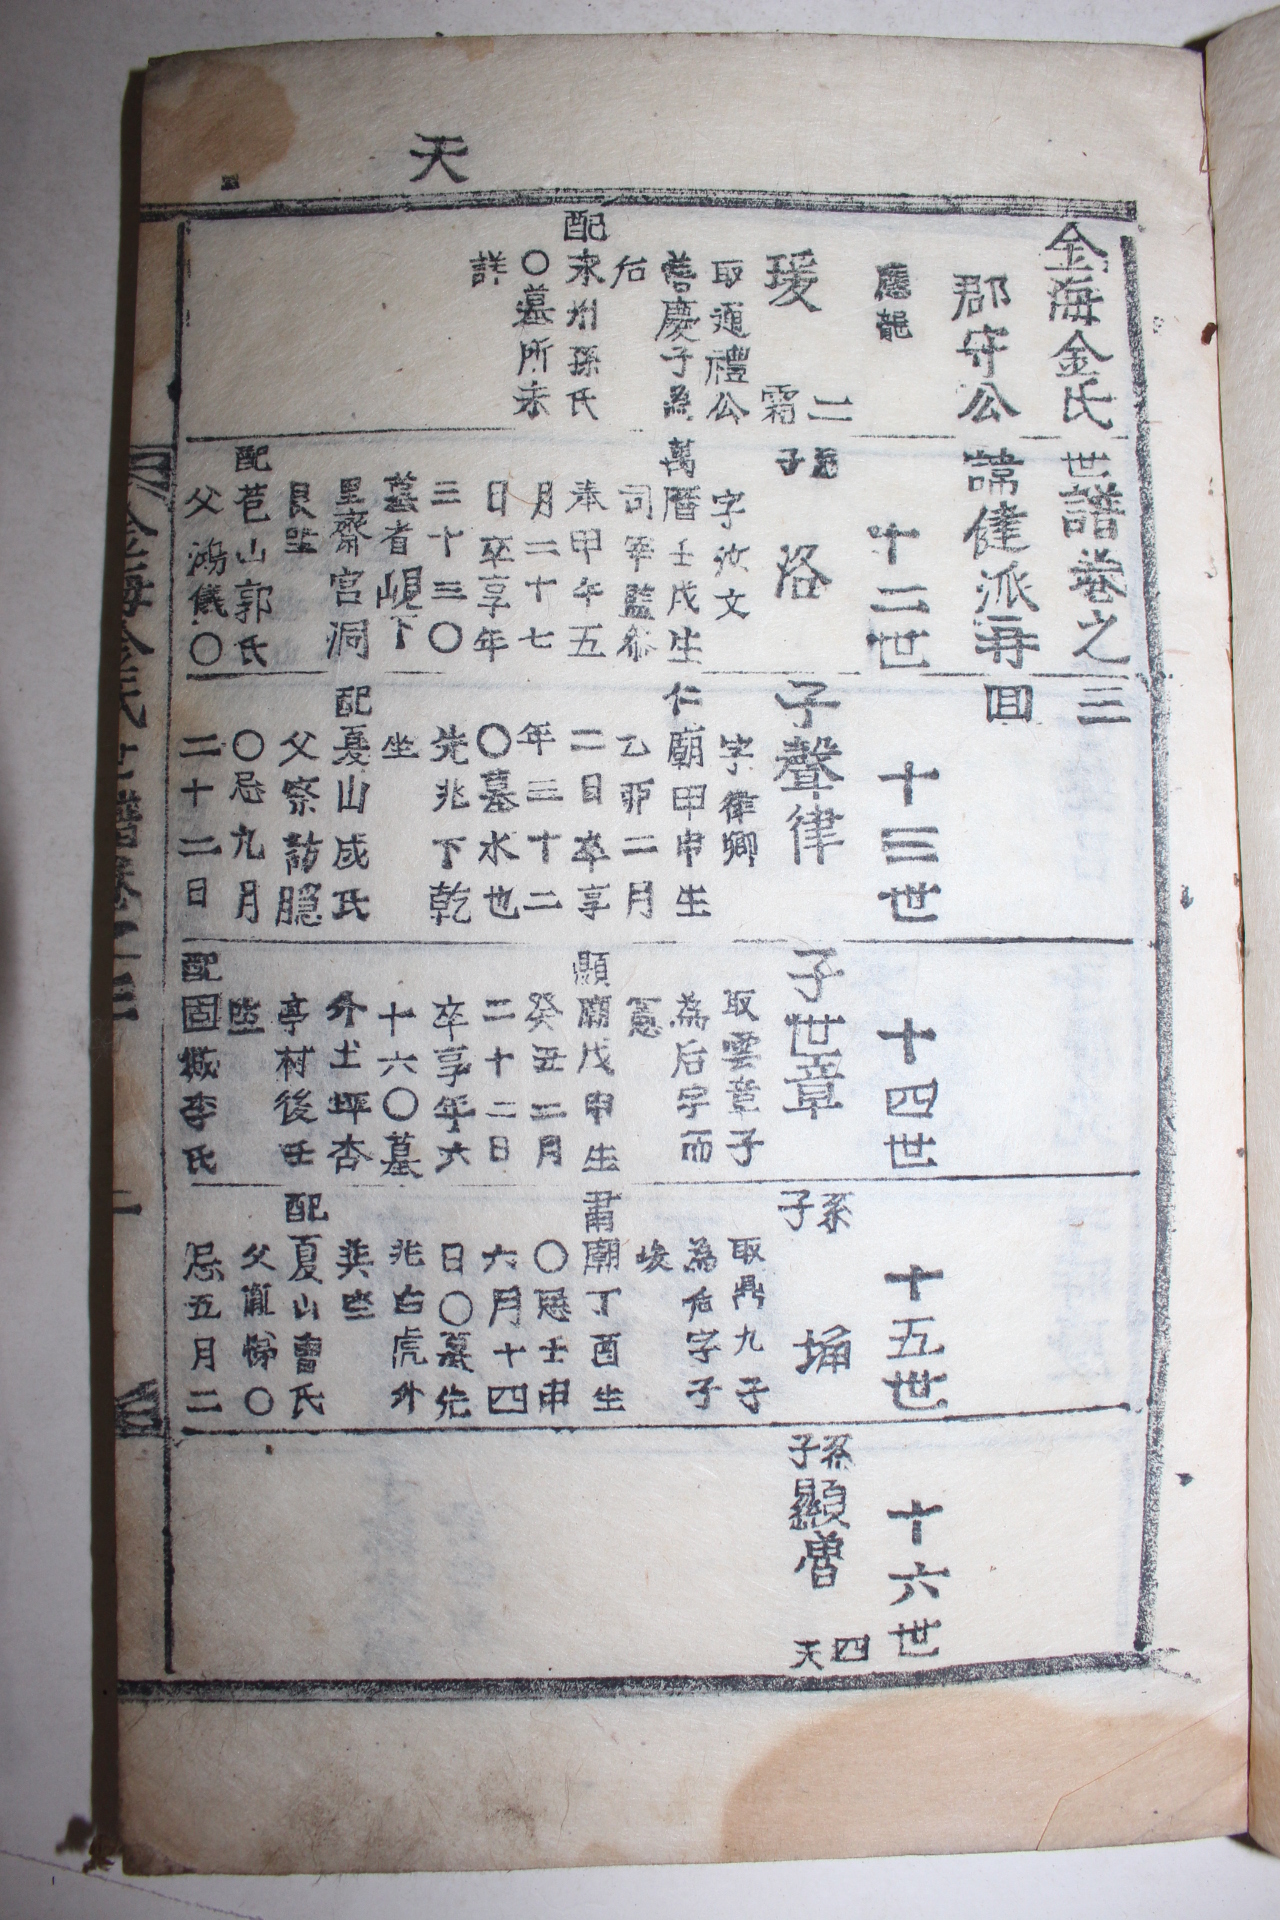 天
金海金氏世譜卷之三
郡守公諱健派再回
應龍
十二世
十三世
十四世
十五世
十六世
瑗
二
霜
取通禮公
善慶子為
后
配永州孫氏
〇墓所未
詳
子
洛
字汝文
萬曆壬戌生
司宰監參
奉甲午五
月二十七
日卒享年
三十三〇
墓省峴下
里齋宮洞
艮坐
配苞山郭氏
父鴻儀〇
子聲律
字律卿
仁廟甲申生
乙卯二月
二日卒享
年三十二
〇墓水也
先兆下乾
坐
配夏山成氏
父察訪
〇忌九月
二十二日
子世章
取雲章子
為后字而
憲
顯廟戊申生
癸丑二月
二十二日
卒享年六
十六〇墓
外土坪杏
亭村後壬
坐
配固城李氏
系子
埇
取鼎九子
為后字子
峻
肅廟丁酉生
〇忌壬申
六月十四
日〇墓先
兆白虎外
巽坐
配夏山曺氏
父胤悌〇
忌五月二
系子
顯曾
四
天
金海金氏世譜卷之三
二